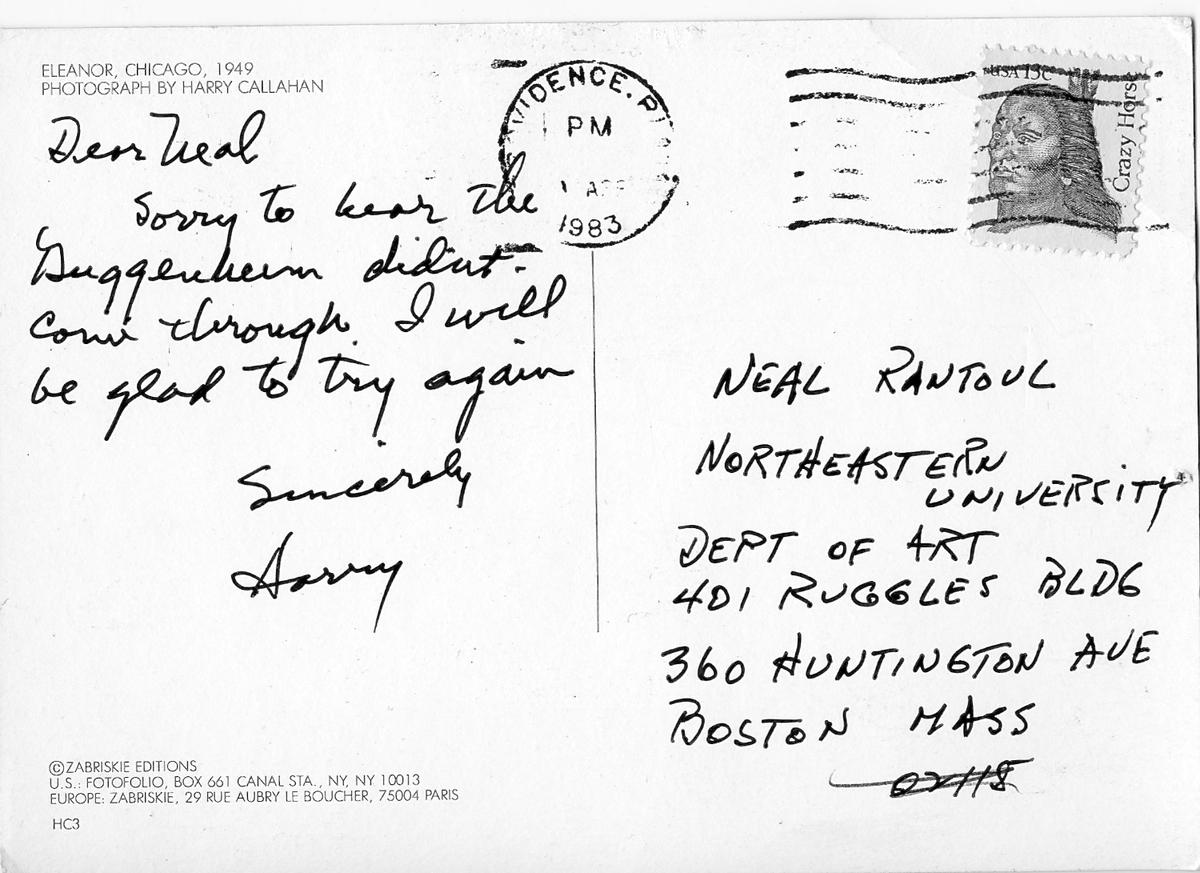 ELEANOR, CHICAGO, 1949
PHOTOGRAPH BY HARRY CALLAHAN
Dear Neal
Sorry to hear the
Guggenheim didn't
come through. I will
be glad to try again
Sincerely
Harry
©ZABRISKIE EDITIONS
U.S.: FOTOFOLIO, BOX 661 CANAL STA., NY, NY 10013
EUROPE: ZABRISKIE, 29 RUE AUBRY LE BOUCHER, 75004 PARIS
HC3
VIDENCE, R
PM
1983
USA 13c
Crazy Horse
NEAL RANTOUL
NORTHEASTERN
UNIVERSITY
DEPT OF ART
401 RUGGLES BLDG
360 HUNTINGTON AVE
BOSTON MASS
02115